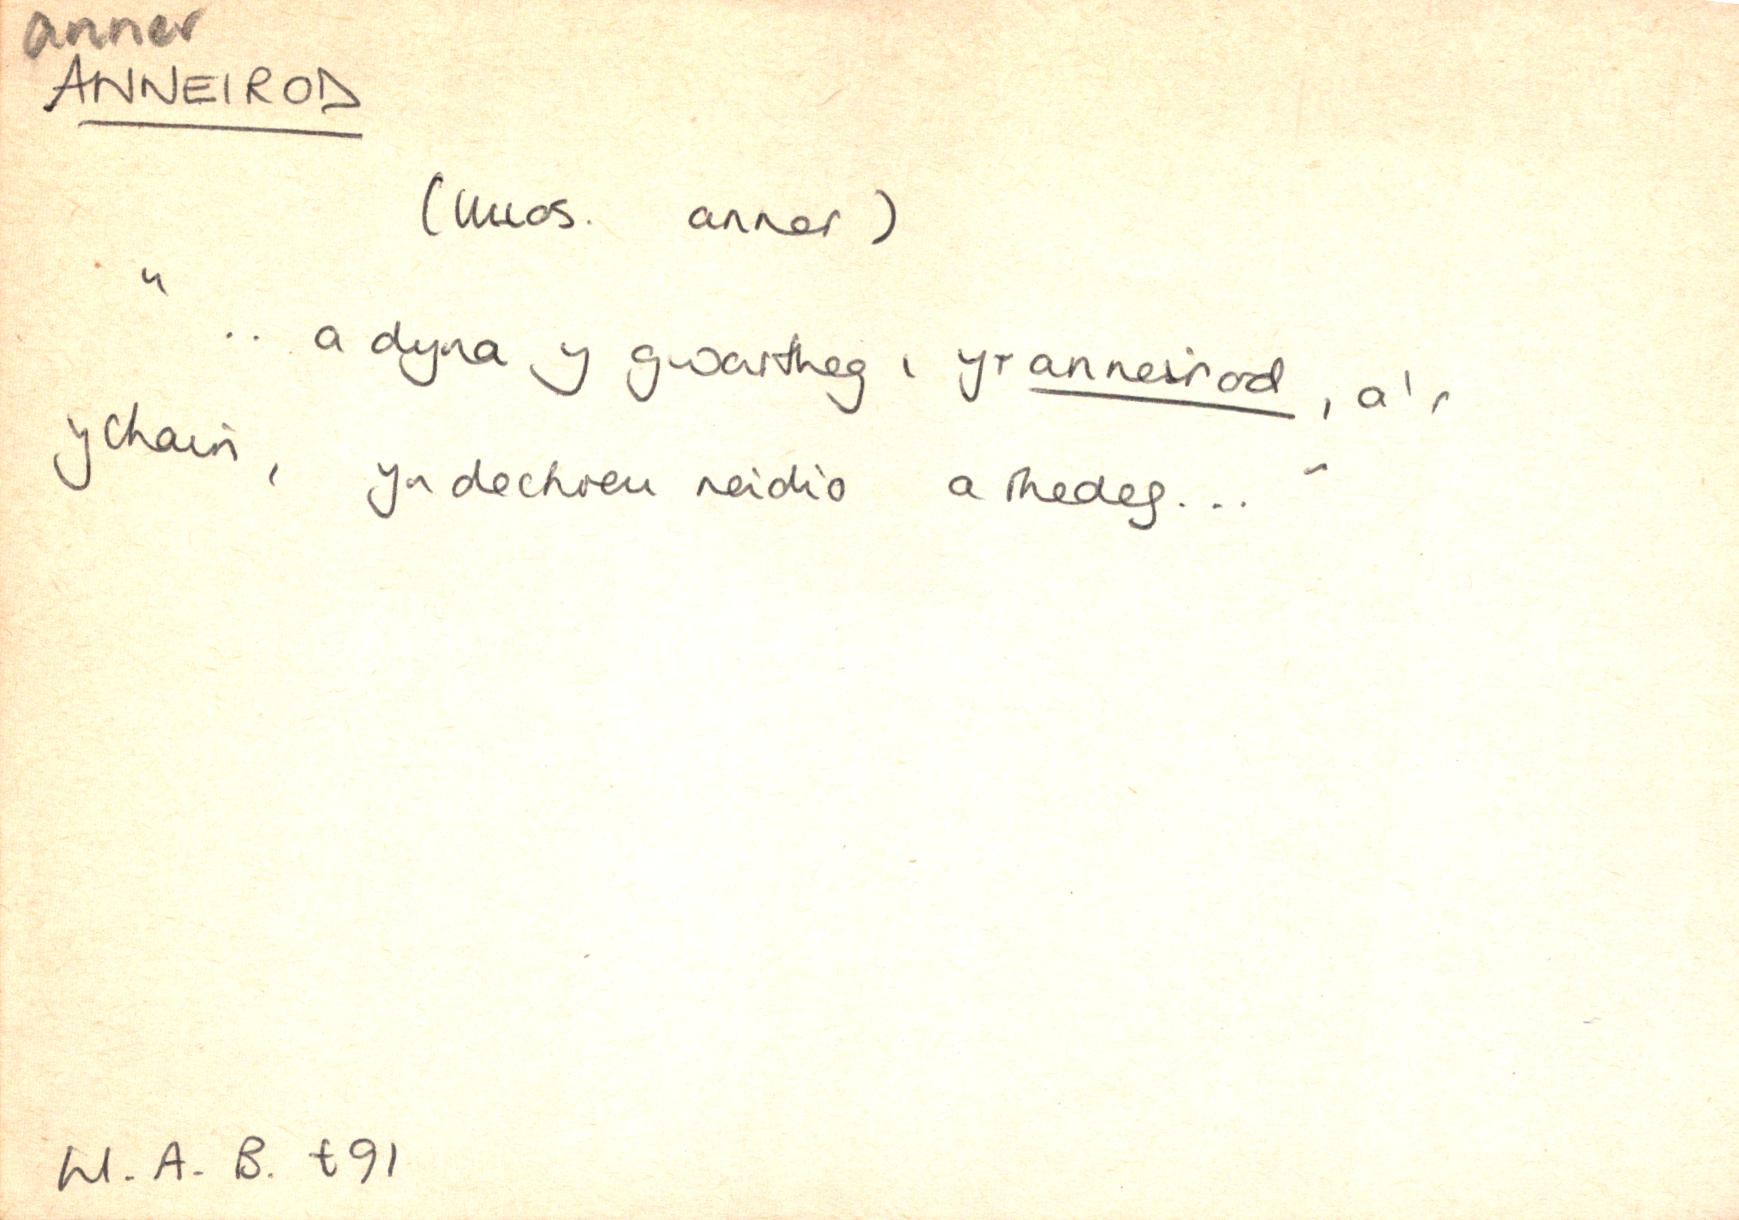 anner
ANNEIROD
(lluos. anner)
" .. a dyna y gwartheg, yr anneirod, a'r
ychain, yn dechreu neidio a rhedeg... "
W. A. B. t91